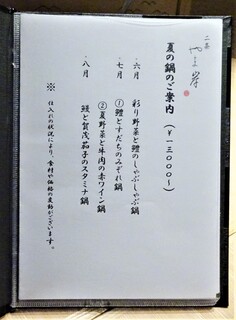 二条
夏の鍋のご案内（￥一三〇〇〇～）
・六月　彩り野菜と鱧のしゃぶしゃぶ鍋
・七月　①鱧とすだちのみぞれ鍋
②夏野菜と牛肉の赤ワイン鍋
・八月　鰻と賀茂茄子のスタミナ鍋
※仕入れの状況により、食材や価格の変動がございます。